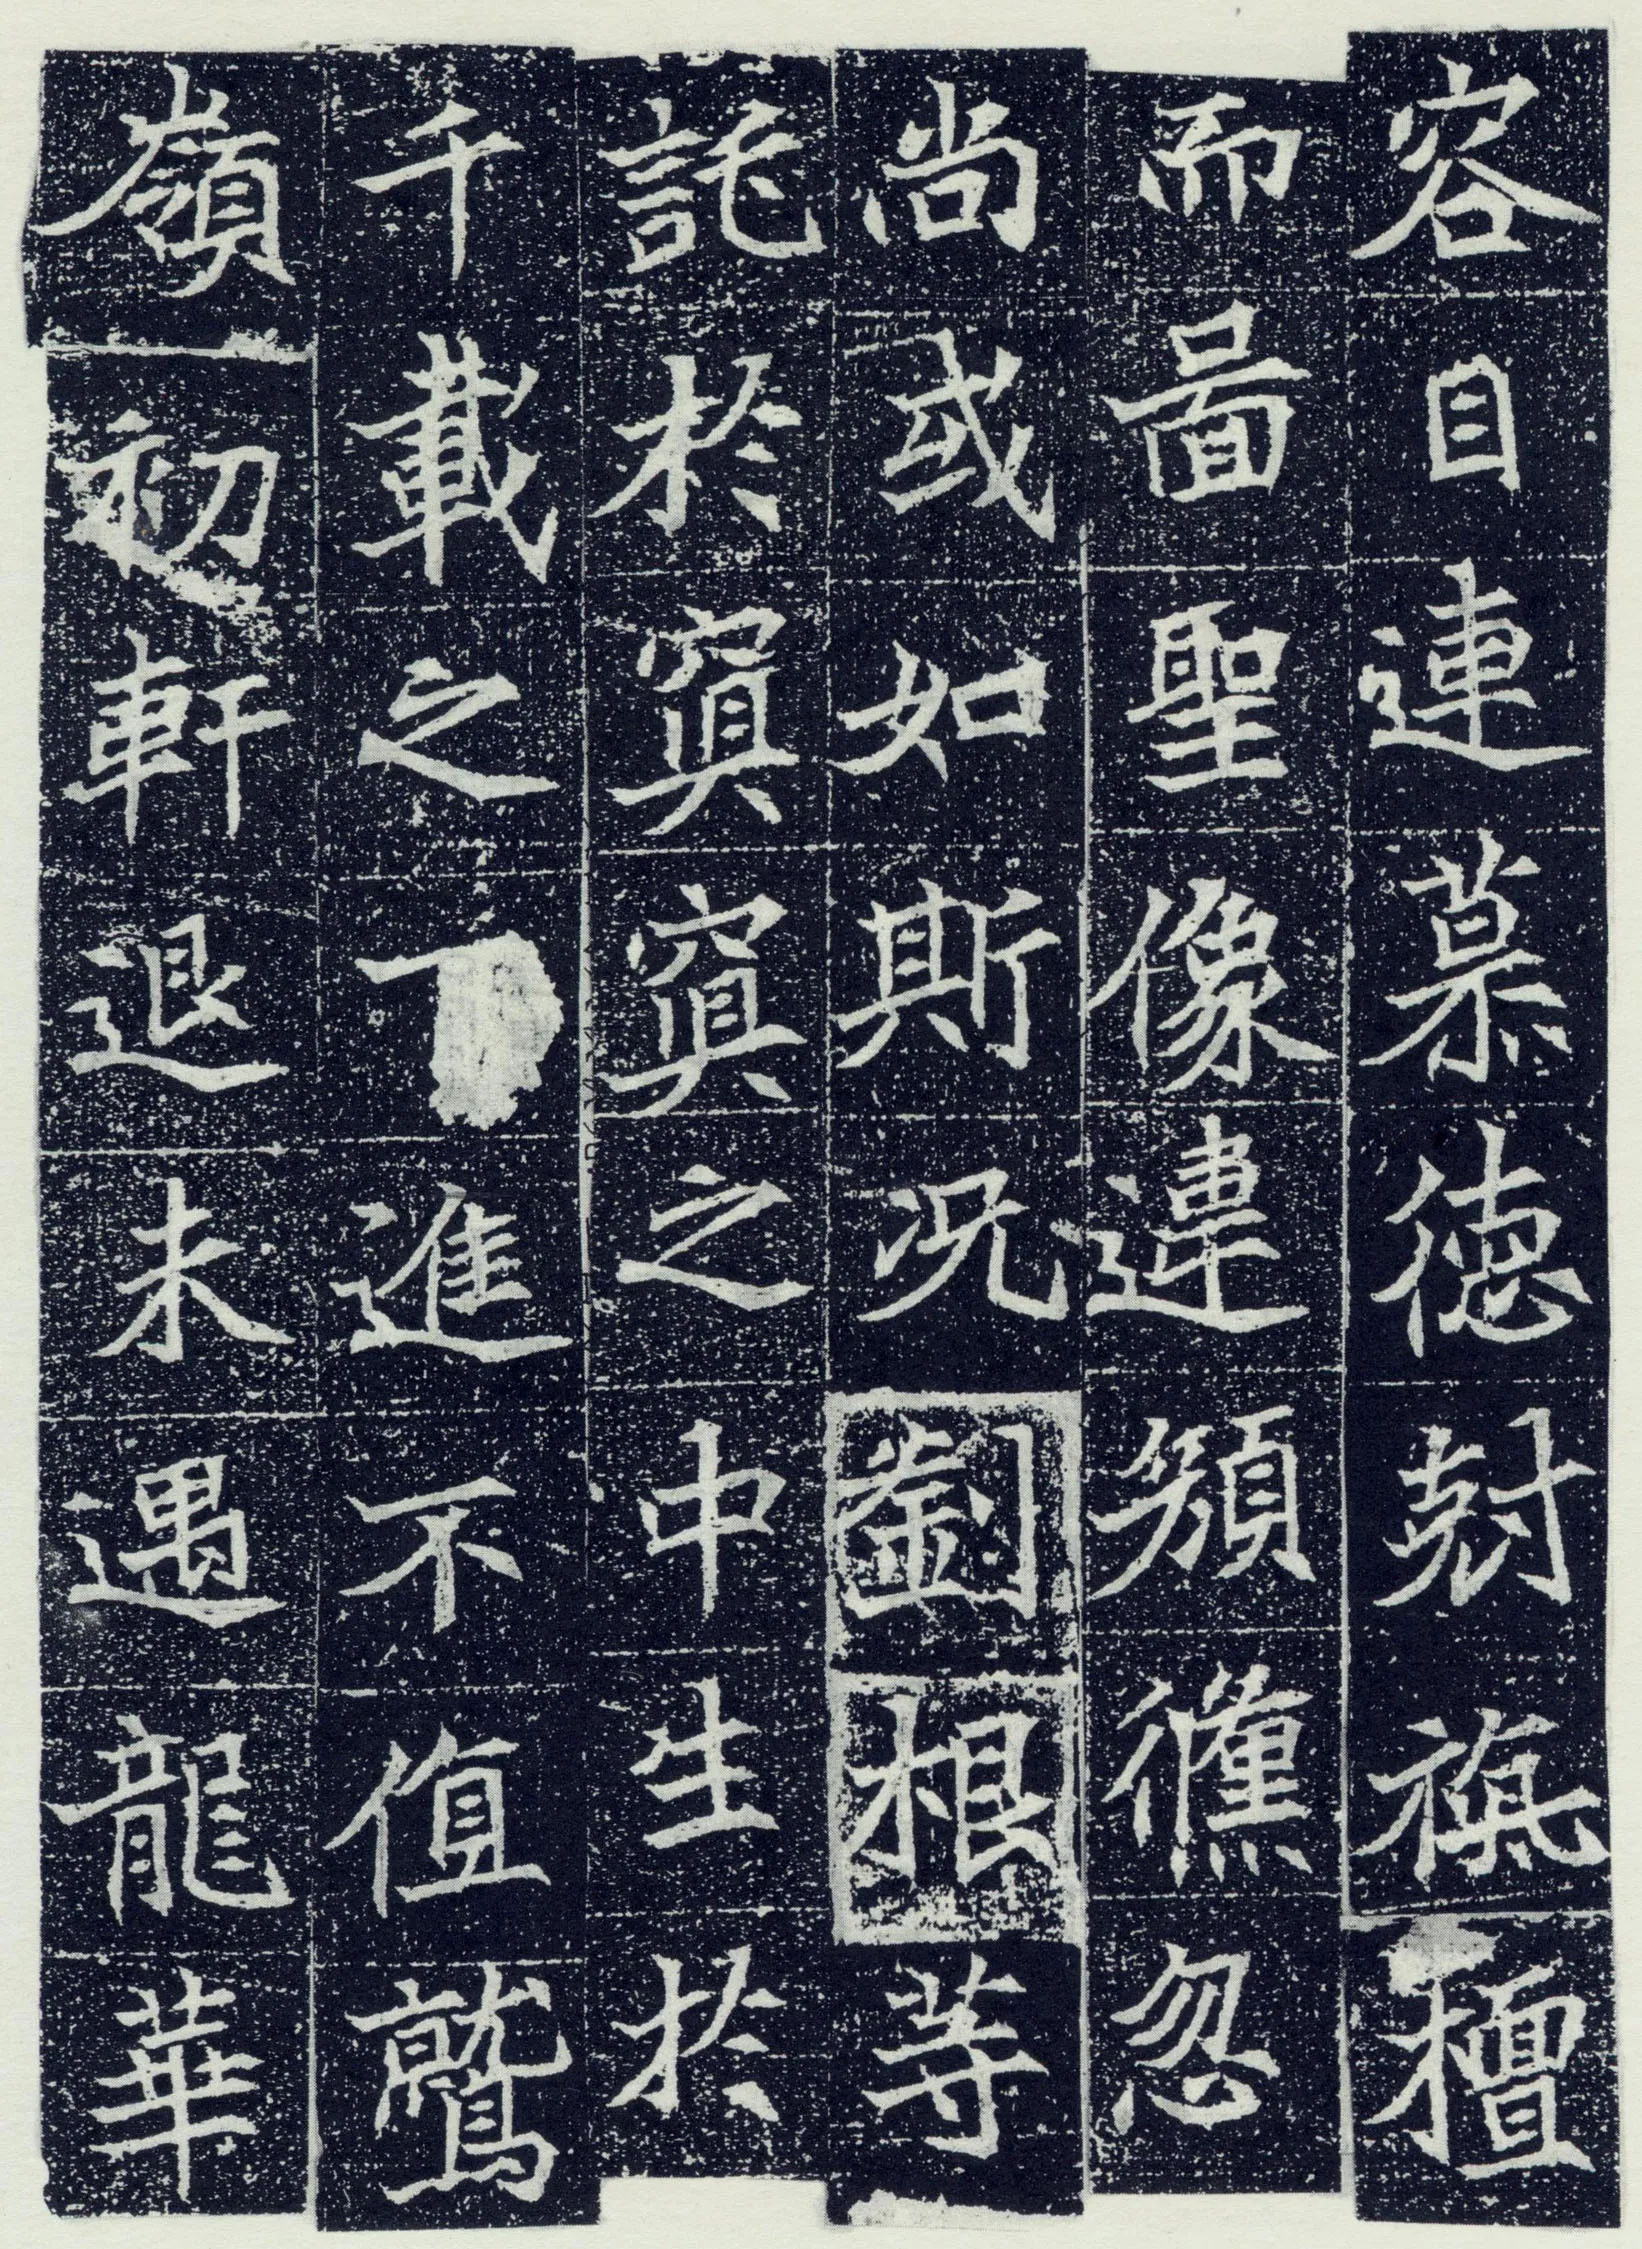 容目連慕德尅旃檀
而啚聖像違顏僅忽
尚或如斯况劉根等
託於冥冥之中生於
千載之下進不值鷲
嶺初軒退未遇龍華